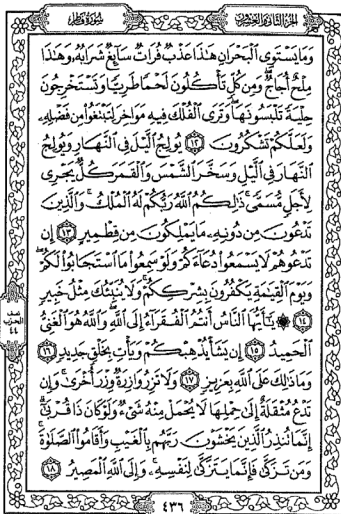 الجزء الثاني والعشرون
سورة فاطر
وَمَا يَسْتَوِي الْبَحْرَانِ هَٰذَا عَذْبٌ فُرَاتٌ سَائِغٌ شَرَابُهُ وَهَٰذَا
مِلْحٌ أُجَاجٌ وَمِن كُلٍّ تَأْكُلُونَ لَحْمًا طَرِيًّا وَتَسْتَخْرِجُونَ
حِلْيَةً تَلْبَسُونَهَا وَتَرَى الْفُلْكَ فِيهِ مَوَاخِرَ لِتَبْتَغُوا مِن فَضْلِهِ
وَلَعَلَّكُمْ تَشْكُرُونَ ١٢ يُولِجُ الَّيْلَ فِي النَّهَارِ وَيُولِجُ
النَّهَارَ فِي الَّيْلِ وَسَخَّرَ الشَّمْسَ وَالْقَمَرَ كُلٌّ يَجْرِي
لِأَجَلٍ مُّسَمًّى ذَٰلِكُمُ اللَّهُ رَبُّكُمْ لَهُ الْمُلْكُ وَالَّذِينَ
تَدْعُونَ مِن دُونِهِ مَا يَمْلِكُونَ مِن قِطْمِيرٍ ١٣ إِن
تَدْعُوهُمْ لَا يَسْمَعُوا دُعَاءَكُمْ وَلَوْ سَمِعُوا مَا اسْتَجَابُوا لَكُمْ
وَيَوْمَ الْقِيَٰمَةِ يَكْفُرُونَ بِشِرْكِكُمْ وَلَا يُنَبِّئُكَ مِثْلُ خَبِيرٍ
١٤ ۞ يَٰأَيُّهَا النَّاسُ أَنتُمُ الْفُقَرَاءُ إِلَى اللَّهِ وَاللَّهُ هُوَ الْغَنِيُّ
الْحَمِيدُ ١٥ إِن يَشَأْ يُذْهِبْكُمْ وَيَأْتِ بِخَلْقٍ جَدِيدٍ ١٦
وَمَا ذَٰلِكَ عَلَى اللَّهِ بِعَزِيزٍ ١٧ وَلَا تَزِرُ وَازِرَةٌ وِزْرَ أُخْرَىٰ وَإِن
تَدْعُ مُثْقَلَةٌ إِلَىٰ حِمْلِهَا لَا يُحْمَلْ مِنْهُ شَيْءٌ وَلَوْ كَانَ ذَا قُرْبَىٰ
إِنَّمَا تُنذِرُ الَّذِينَ يَخْشَوْنَ رَبَّهُم بِالْغَيْبِ وَأَقَامُوا الصَّلَوٰةَ
وَمَن تَزَكَّىٰ فَإِنَّمَا يَتَزَكَّىٰ لِنَفْسِهِ وَإِلَى اللَّهِ الْمَصِيرُ ١٨
نصف
الحزب
٤٤
٤٣٦